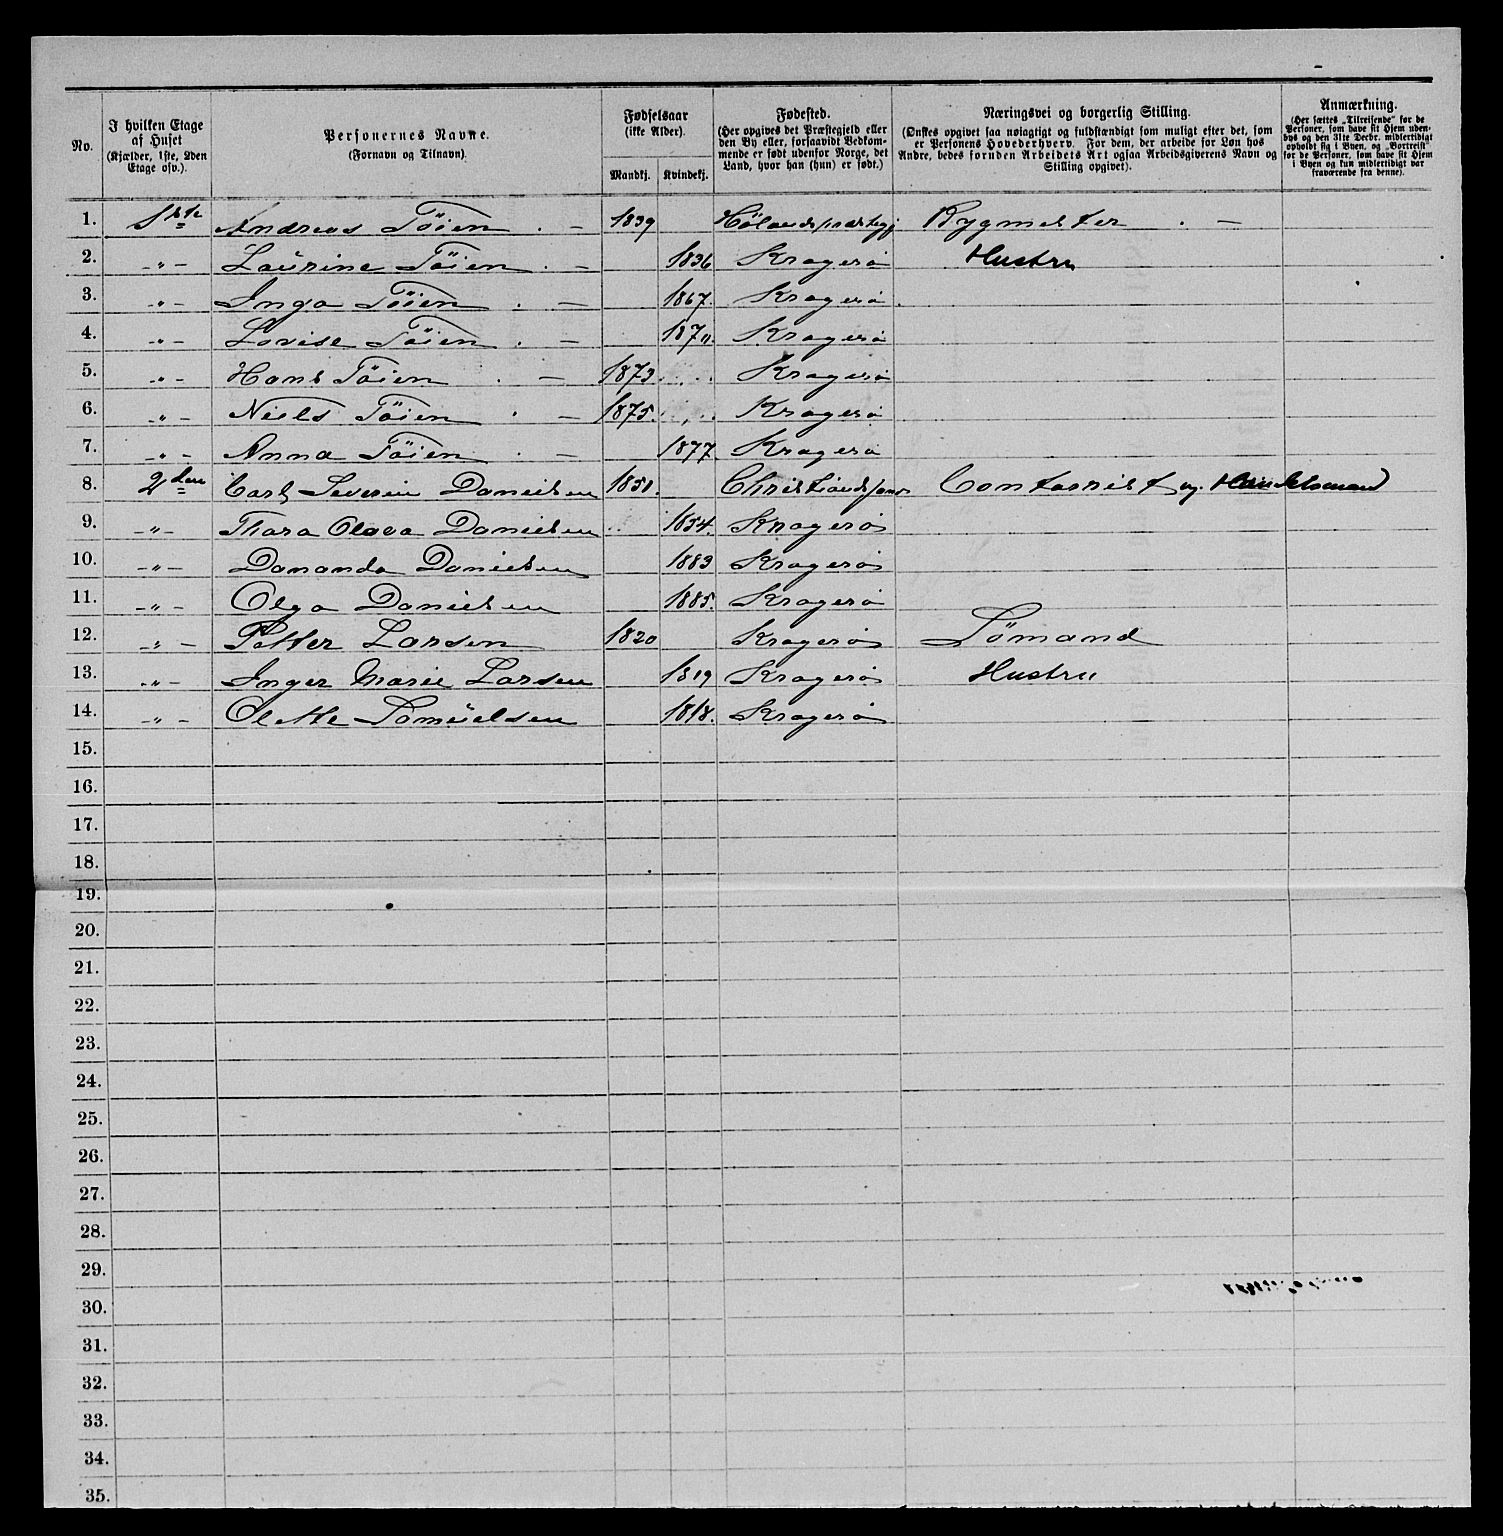 No.
I hvilken Etage af Huset (Kjælder, 1ste, 2den Etage osv.).
Personernes Navne. (Fornavn og Tilnavn).
Fødselsaar (ikke Alder). Mandkj. Kvindekj.
Fødested. (Her opgives det Præstegjeld eller den By eller, forsaavidt Vedkommende er født udenfor Norge, det Land, hvor han (hun) er født.)
Næringsvei og borgerlig Stilling. (Ønskes opgivet saa nøiagtigt og fuldstændigt som muligt efter det, som er Personens Hovederhverv. For dem, der arbeide for Løn hos Andre, bedes foruden Arbeidets Art ogsaa Arbeidsgiverens Navn og Stilling opgivet).
Anmærkning. (Her sættes „Tilreisende“ for de Personer, som have sit Hjem udenbys og den 31te Decbr. midlertidigt opholdt sig i Byen, og „Bortreist“ for de Personer, som have sit Hjem i Byen og kun midlertidigt var fraværende fra denne).
1. 1ste Andreas Töien . — 1839 Rygmester . —
2. -„- Laurine Töien . — 1836 Kragerö Hustru
3. -„- Inga Töien . — 1867. Kragerö .
4. -„- Lovise Töien . — Kragerö
5. -„- Hans Töien . — 1873. Kragerö
6. -„- Niels Töien . — 1875. Kragerö
7. -„- Anna Töien . — 1877 Kragerö
8. 2den Carl Severin Danielsen 1850. Christiandssand Contorrist og Handelsmand
9. -„- Thora Olava Danielsen 1854. Kragerö
10. -„- Danielsen 1883 Kragerö
11. -„- Olga Danielsen 1885. Kragerö
12. -„- Petter Larsen 1820 Kragerö Sömand
13. -„- Inger Marie Larsen 1819 Kragerö Hustru
14. -„- Olette Samuelsen 1818. Kragerö
15.
16.
17.
18.
19.
20.
21.
22.
23.
24.
25.
26.
27.
28.
29.
30.
31.
32.
33.
34.
35.